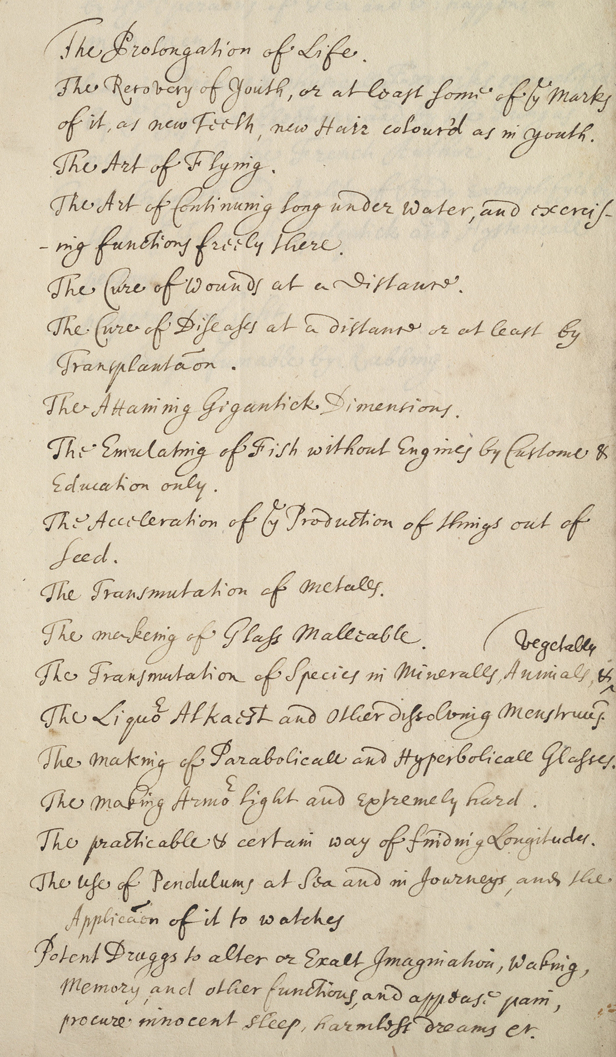 The Prolongation of Life.
The Recovery of Youth, or at least some of yͤ Marks
of it, as new Teeth, new Hair colour'd as in youth.
The Art of Flying.
The Art of Continuing long under Water, and exercis-
-ing functions freely there.
The Cure of Wounds at a Distance.
The Cure of Diseases at a distance or at least by
Transplantaōn.
The Attaining Gigantick Dimensions.
The Emulating of Fish without Engines by Custome &
Education only.
The Acceleration of yͤ Production of things out of
Seed.
The Transmutation of Metalls.
The makeing of Glass Malleable.
(Vegetally
The Transmutation of Species in Mineralls, Animals, &
The Liquoͬ Alkaest and Other dissolving Menstruums.
The making of Parabolicall and Hyperbolicall Glasses.
The making Armoͬ light and extremely hard.
The practicable & certain way of finding Longitudes.
The use of Pendulums at Sea and in Journeys, and the
Applicaōn of it to watches
Potent Druggs to alter or Exalt Imagination, Waking,
Memory, and other functions, and appease pain,
procure innocent sleep, harmless dreams etc.